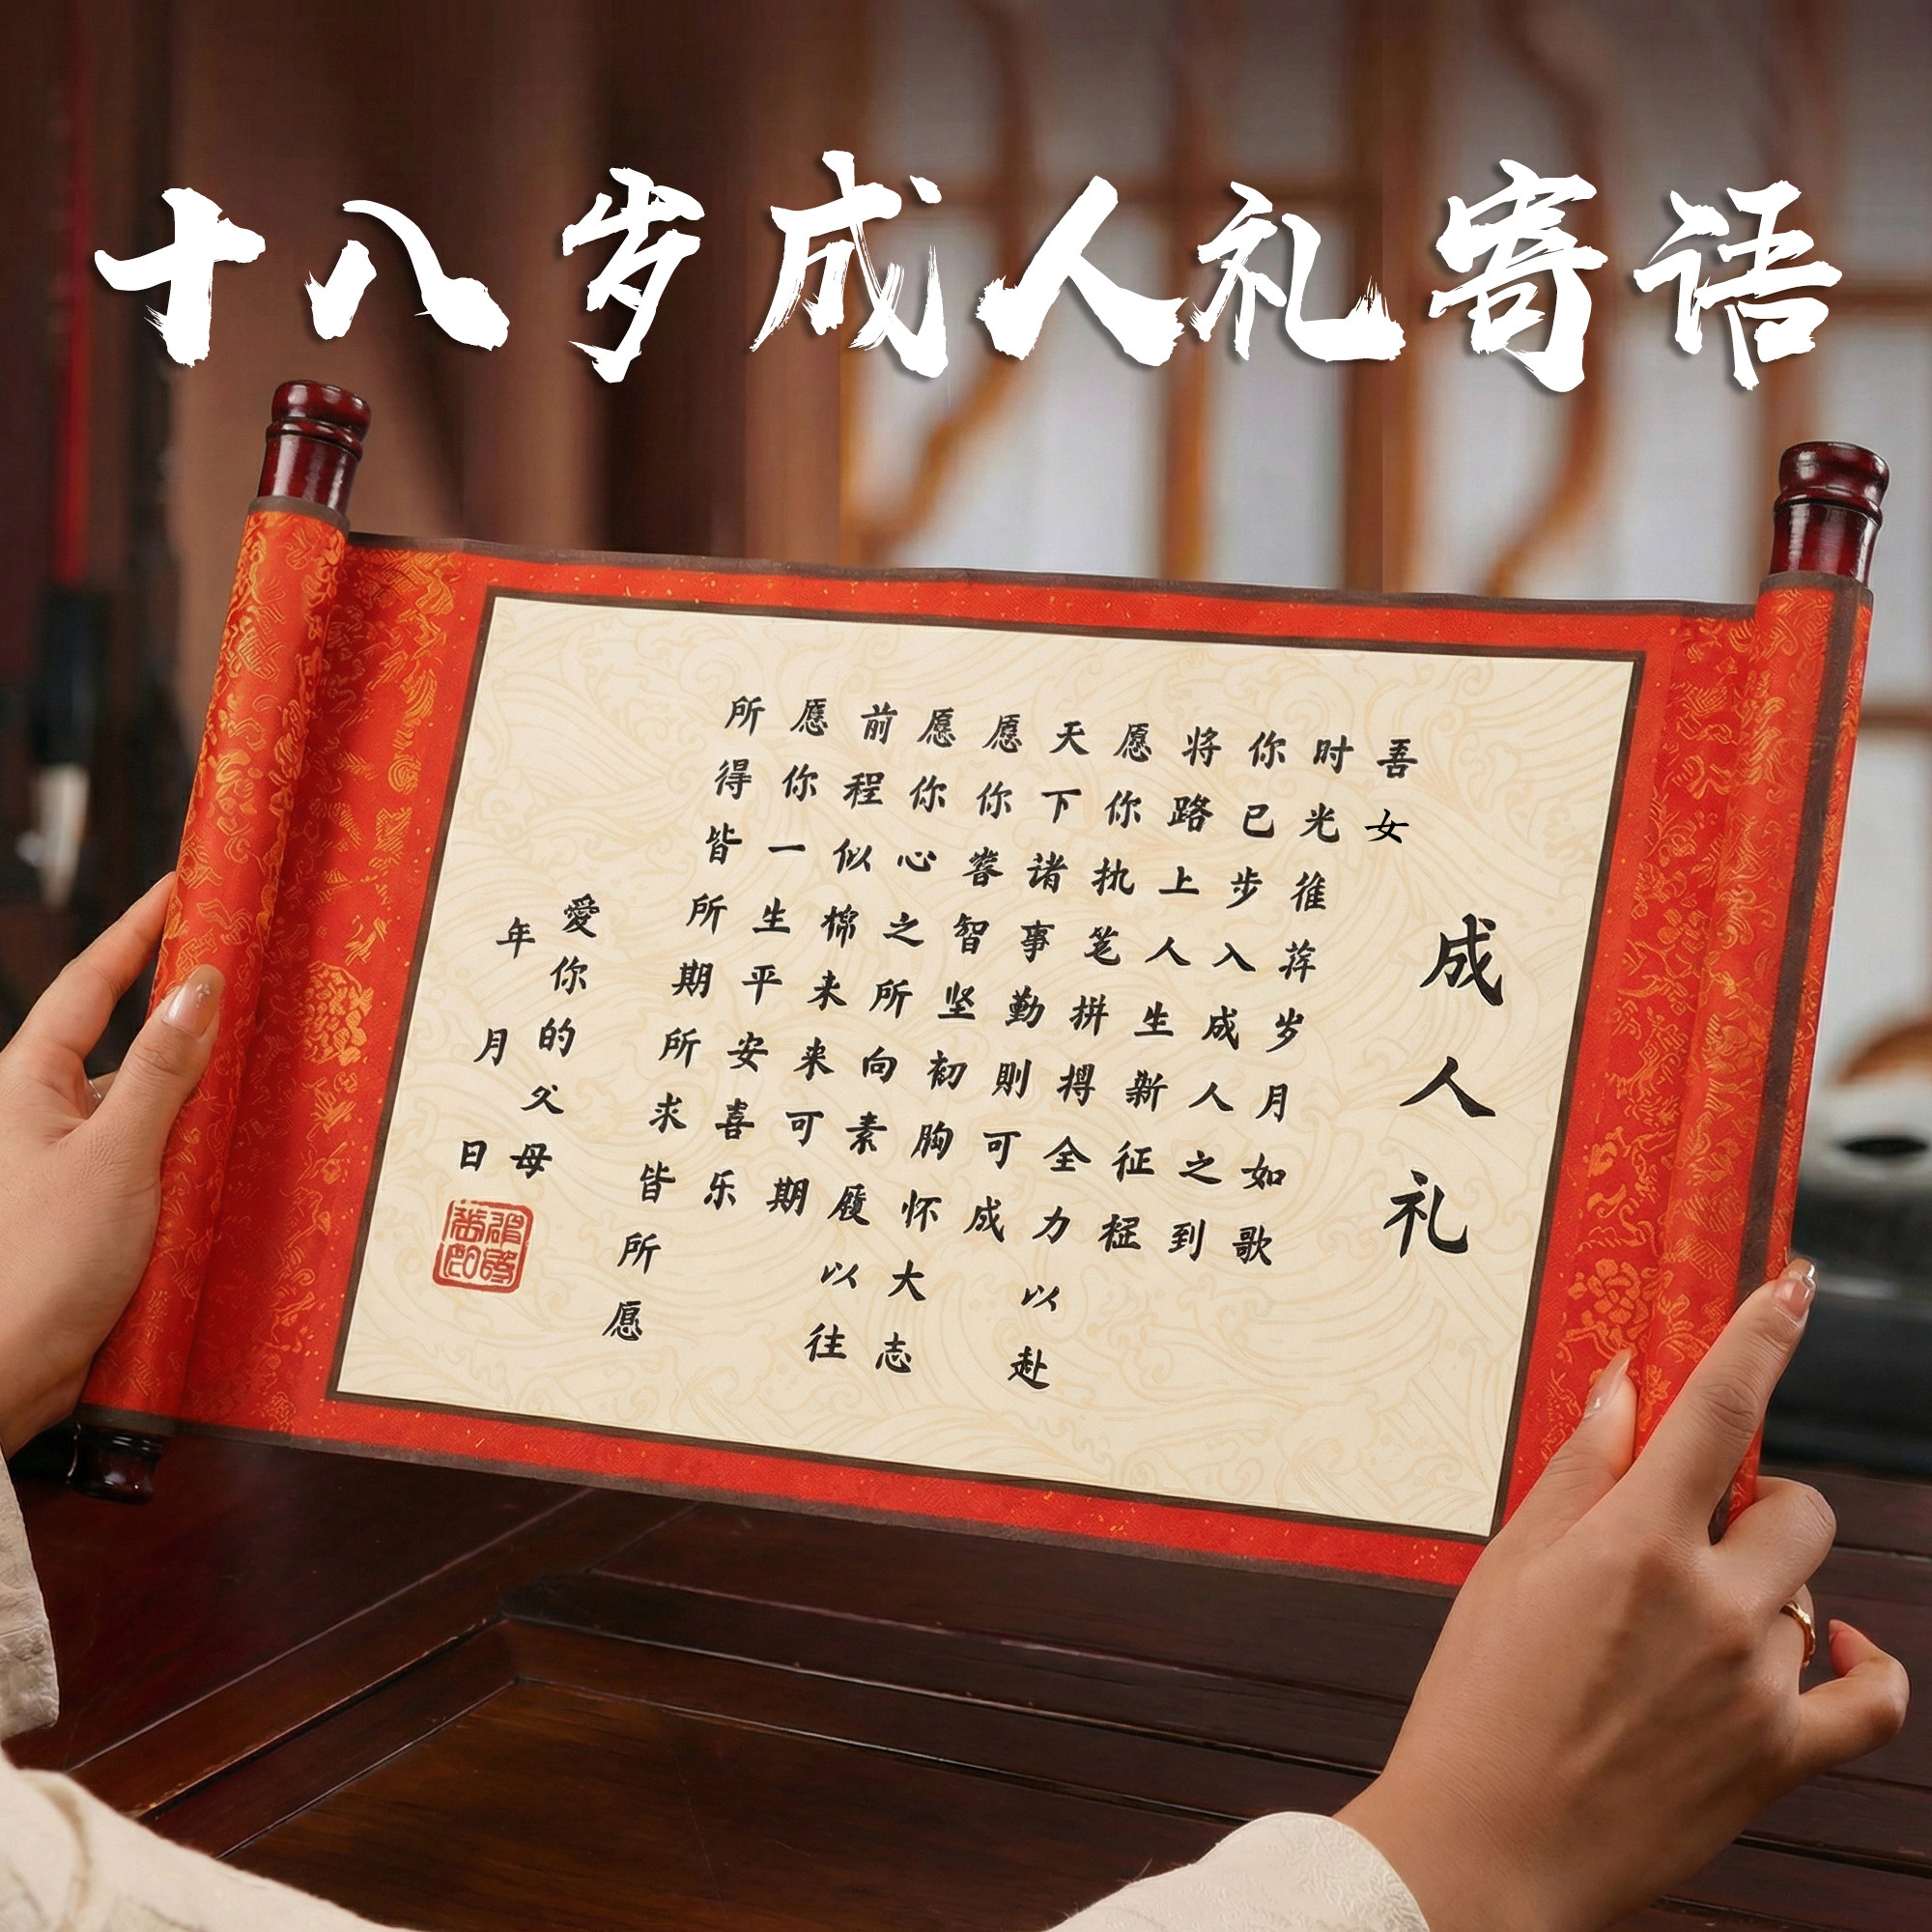 十八岁成人礼寄语
成人礼
吾女
时光岁月如歌
你已步入成人之到
将路上人生新征
愿你执笔拼搏全力以赴
天下诸事勤則可成
愿你智坚初胸怀大志
愿你心之所向素履以往
前程似棉来来可期
愿你一生平安喜乐
所得皆所期所求皆所愿
愛你的父母
年月日